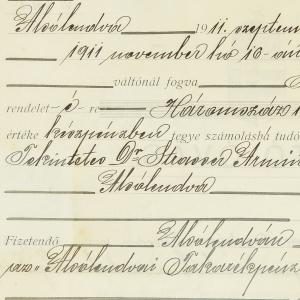 Alsólendva 1911. szeptem
1911 november hó 10-én
váltónál fogva
rendelet-é-re Háromszáz
értéke készpénzben tegye számolásba tudó
Tekintetes Dr Strasser Ármin
Alsólendva
Fizetendő Alsólendván
az "Alsólendvai Takarékpénz